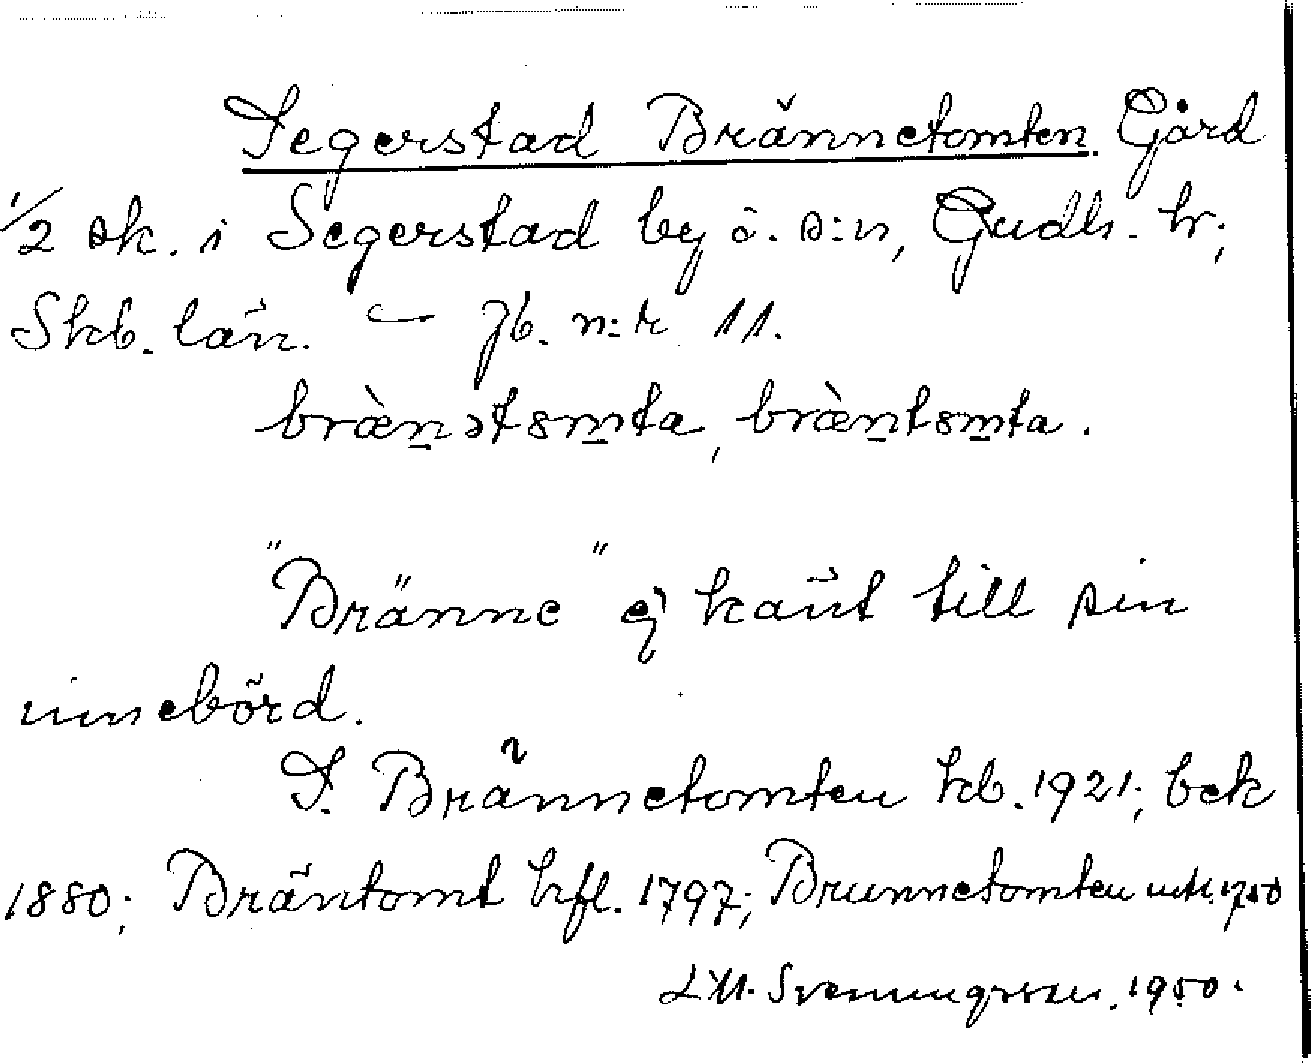 Segerstad Brännetomten. Gård
1/2 sk. i Segerstad by o. s:n, Gudh. hr;
Skb. län. — Jb. n:r 11.
bræ̀n̲ətsm̲ta, bræ̀n̲tsm̲ta.
"Bränne" ej känt till sin
innebörd.
S. Brännetomten kb. 1921; bek
1880; Bräntomt hfl. 1797; Brunnetomten mtl. 1750
L M. Svenungsson. 1950.